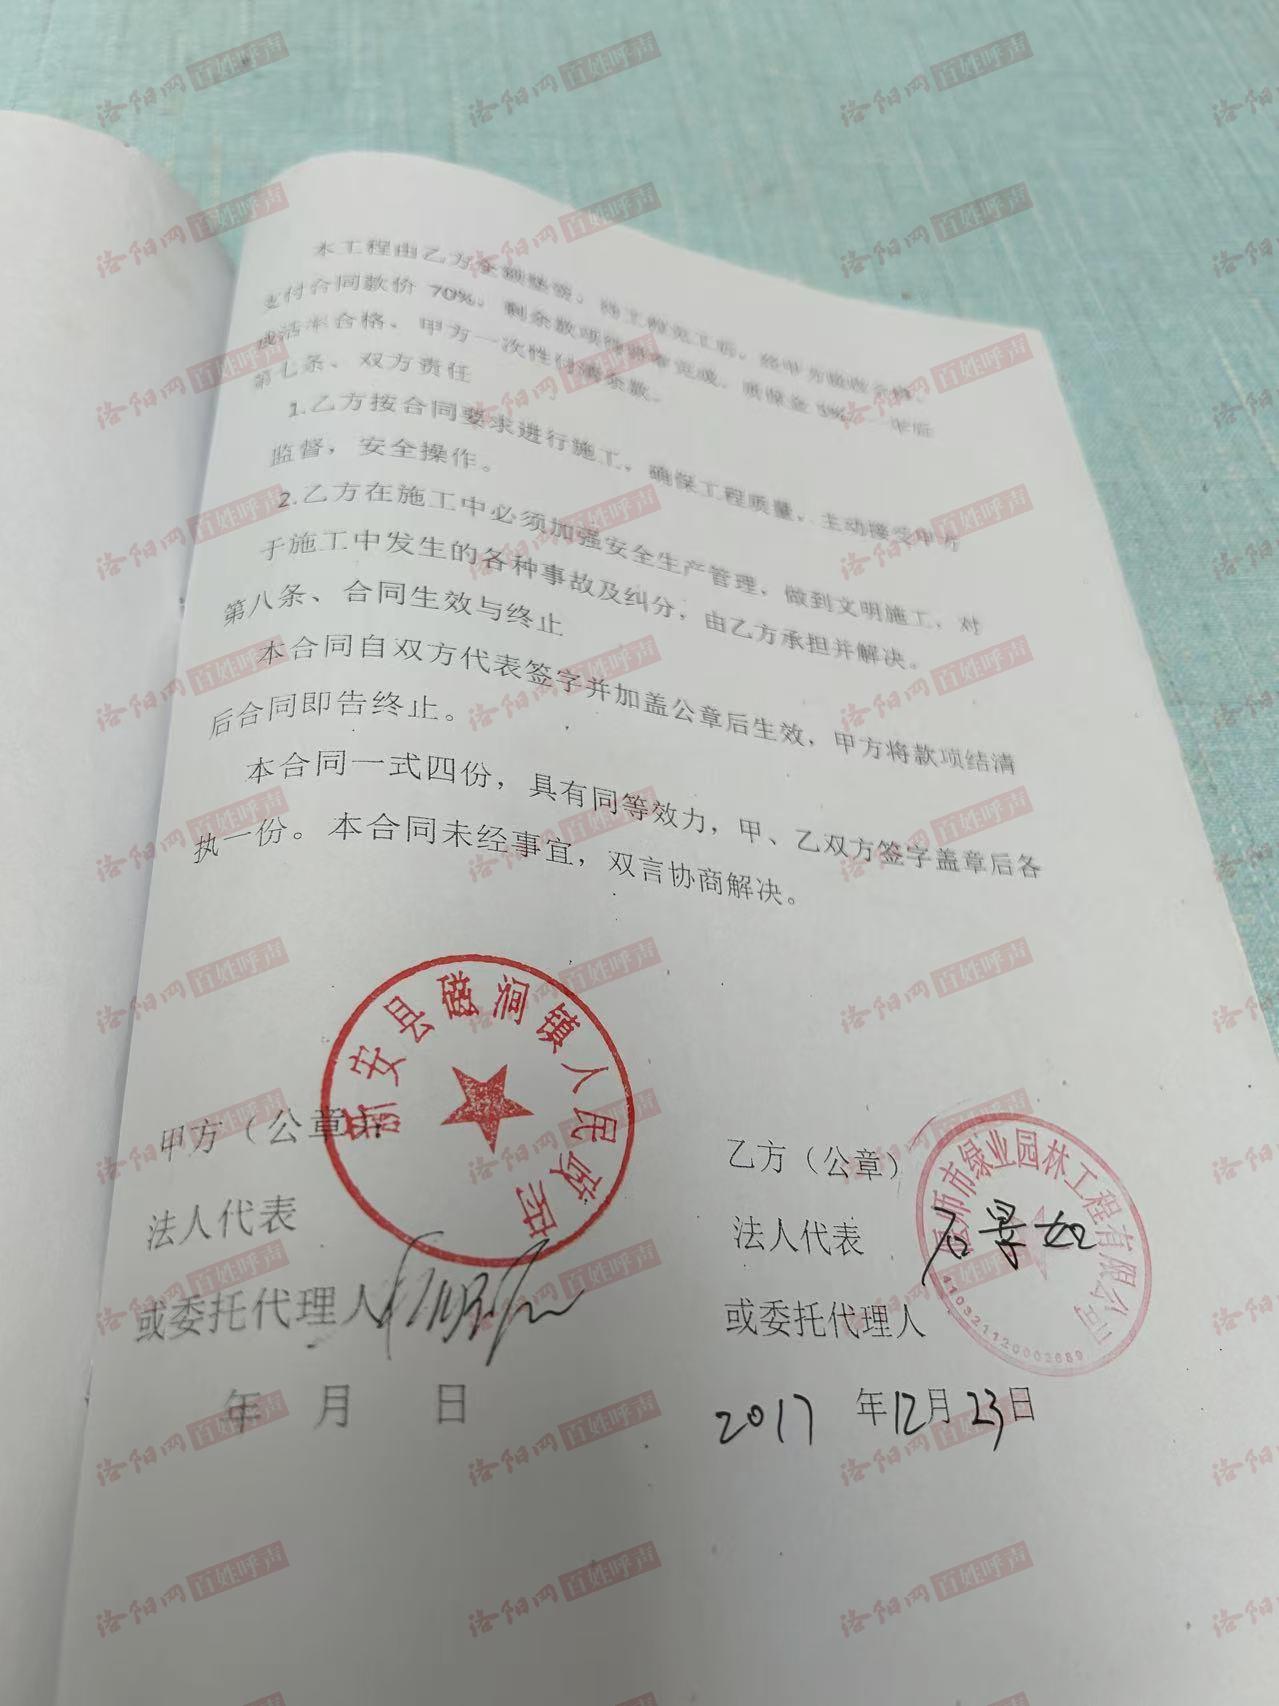 本工程由乙方全额垫资，待工程完工后，经甲方验收合格，
支付合同款价 70%。剩余款项待审计完成，质保金 5%，一年后
成活率合格，甲方一次性付清余款。
第七条、双方责任
1.乙方按合同要求进行施工，确保工程质量，主动接受甲方
监督，安全操作。
2.乙方在施工中必须加强安全生产管理，做到文明施工，对
于施工中发生的各种事故及纠分，由乙方承担并解决。
第八条、合同生效与终止
本合同自双方代表签字并加盖公章后生效，甲方将款项结清
后合同即告终止。
本合同一式四份，具有同等效力，甲、乙双方签字盖章后各
执一份。本合同未经事宜，双言协商解决。
新安县磁涧镇人民政府
甲方（公章）
法人代表
或委托代理人
年 月 日
乙方（公章）
偃师市绿业园林工程有限公司
410321120002689
法人代表
或委托代理人
2017 年12月23日
洛阳网 百姓呼声